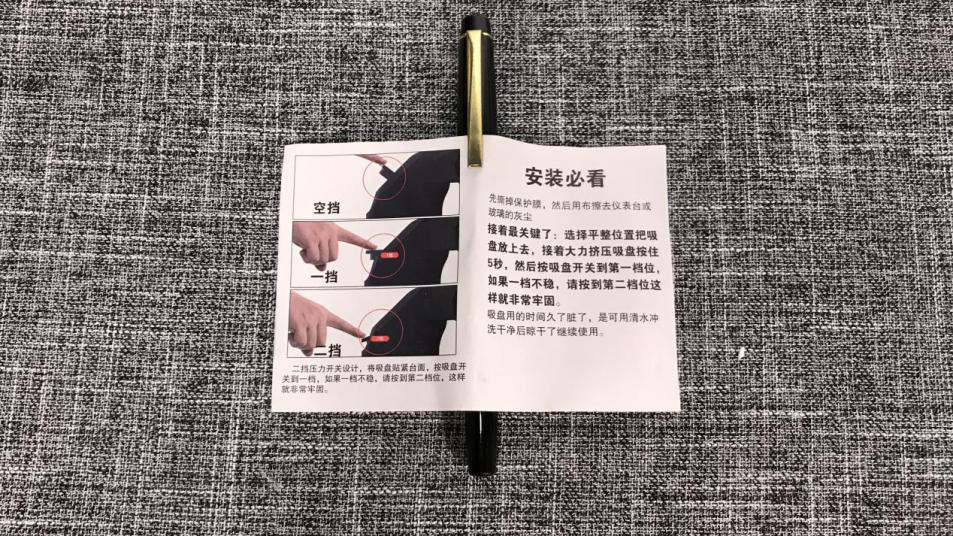 空挡
一挡
二挡
二挡压力开关设计，将吸盘贴紧台面，按吸盘开
关到一档，如果一档不稳，请按到第二档位，这样
就非常牢固。
安装必看
先撕掉保护膜，然后用布擦去仪表台或
玻璃的灰尘
接着最关键了：选择平整位置把吸
盘放上去，接着大力挤压吸盘按住
5秒，然后按吸盘开关到第一档位，
如果一档不稳，请按到第二档位这
样就非常牢固。
吸盘用的时间久了脏了，是可用清水冲
洗干净后晾干了继续使用。